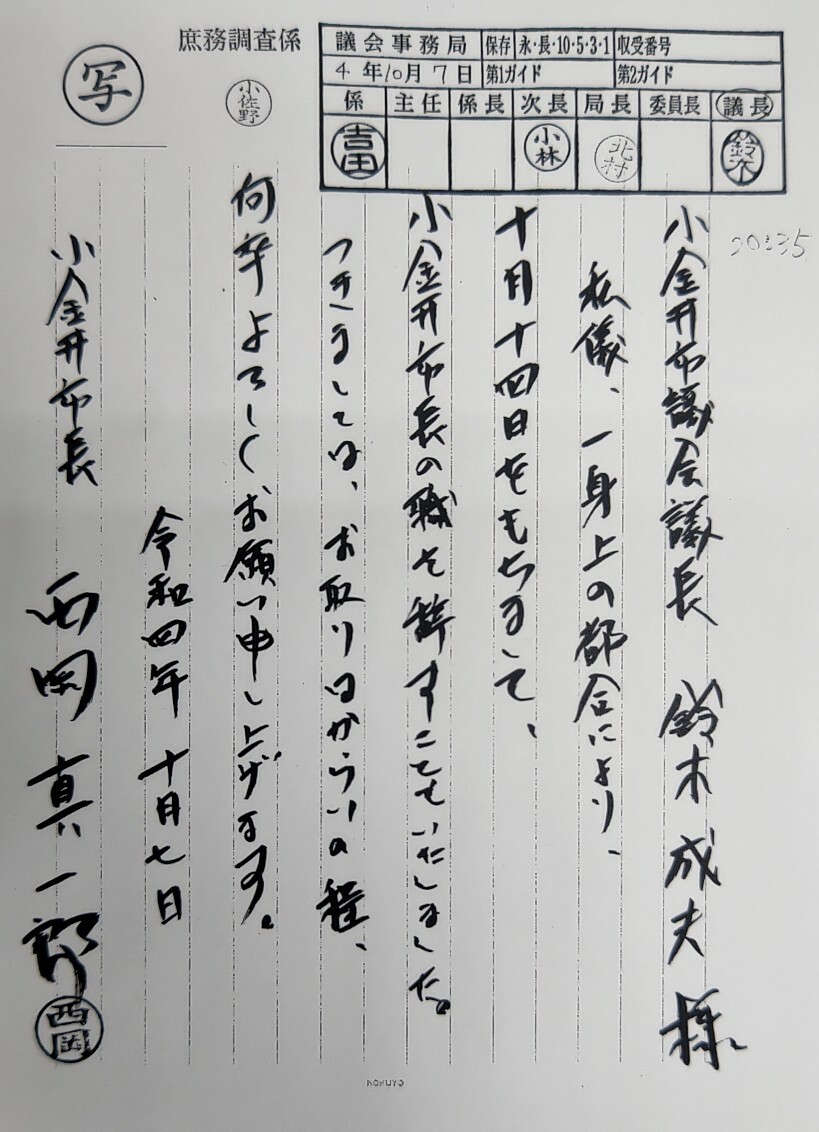 写
庶務調査係
小佐野
議会事務局 保存 永・長・10・5・3・1 収受番号
4年10月7日 第1ガイド 第2ガイド
係 主任 係長 次長 局長 委員長 議長
吉田 小林 北村 鈴木
20:35
小金井市議会議長 鈴木成夫様
私儀、一身上の都合により、
十月十四日をもちまして、
小金井市長の職を辞すことといたしました。
つきましては、お取りはからいの程、
何卒よろしくお願い申し上げます。
令和四年十月七日
小金井市長 西岡真一郎
西岡
KOKUYO